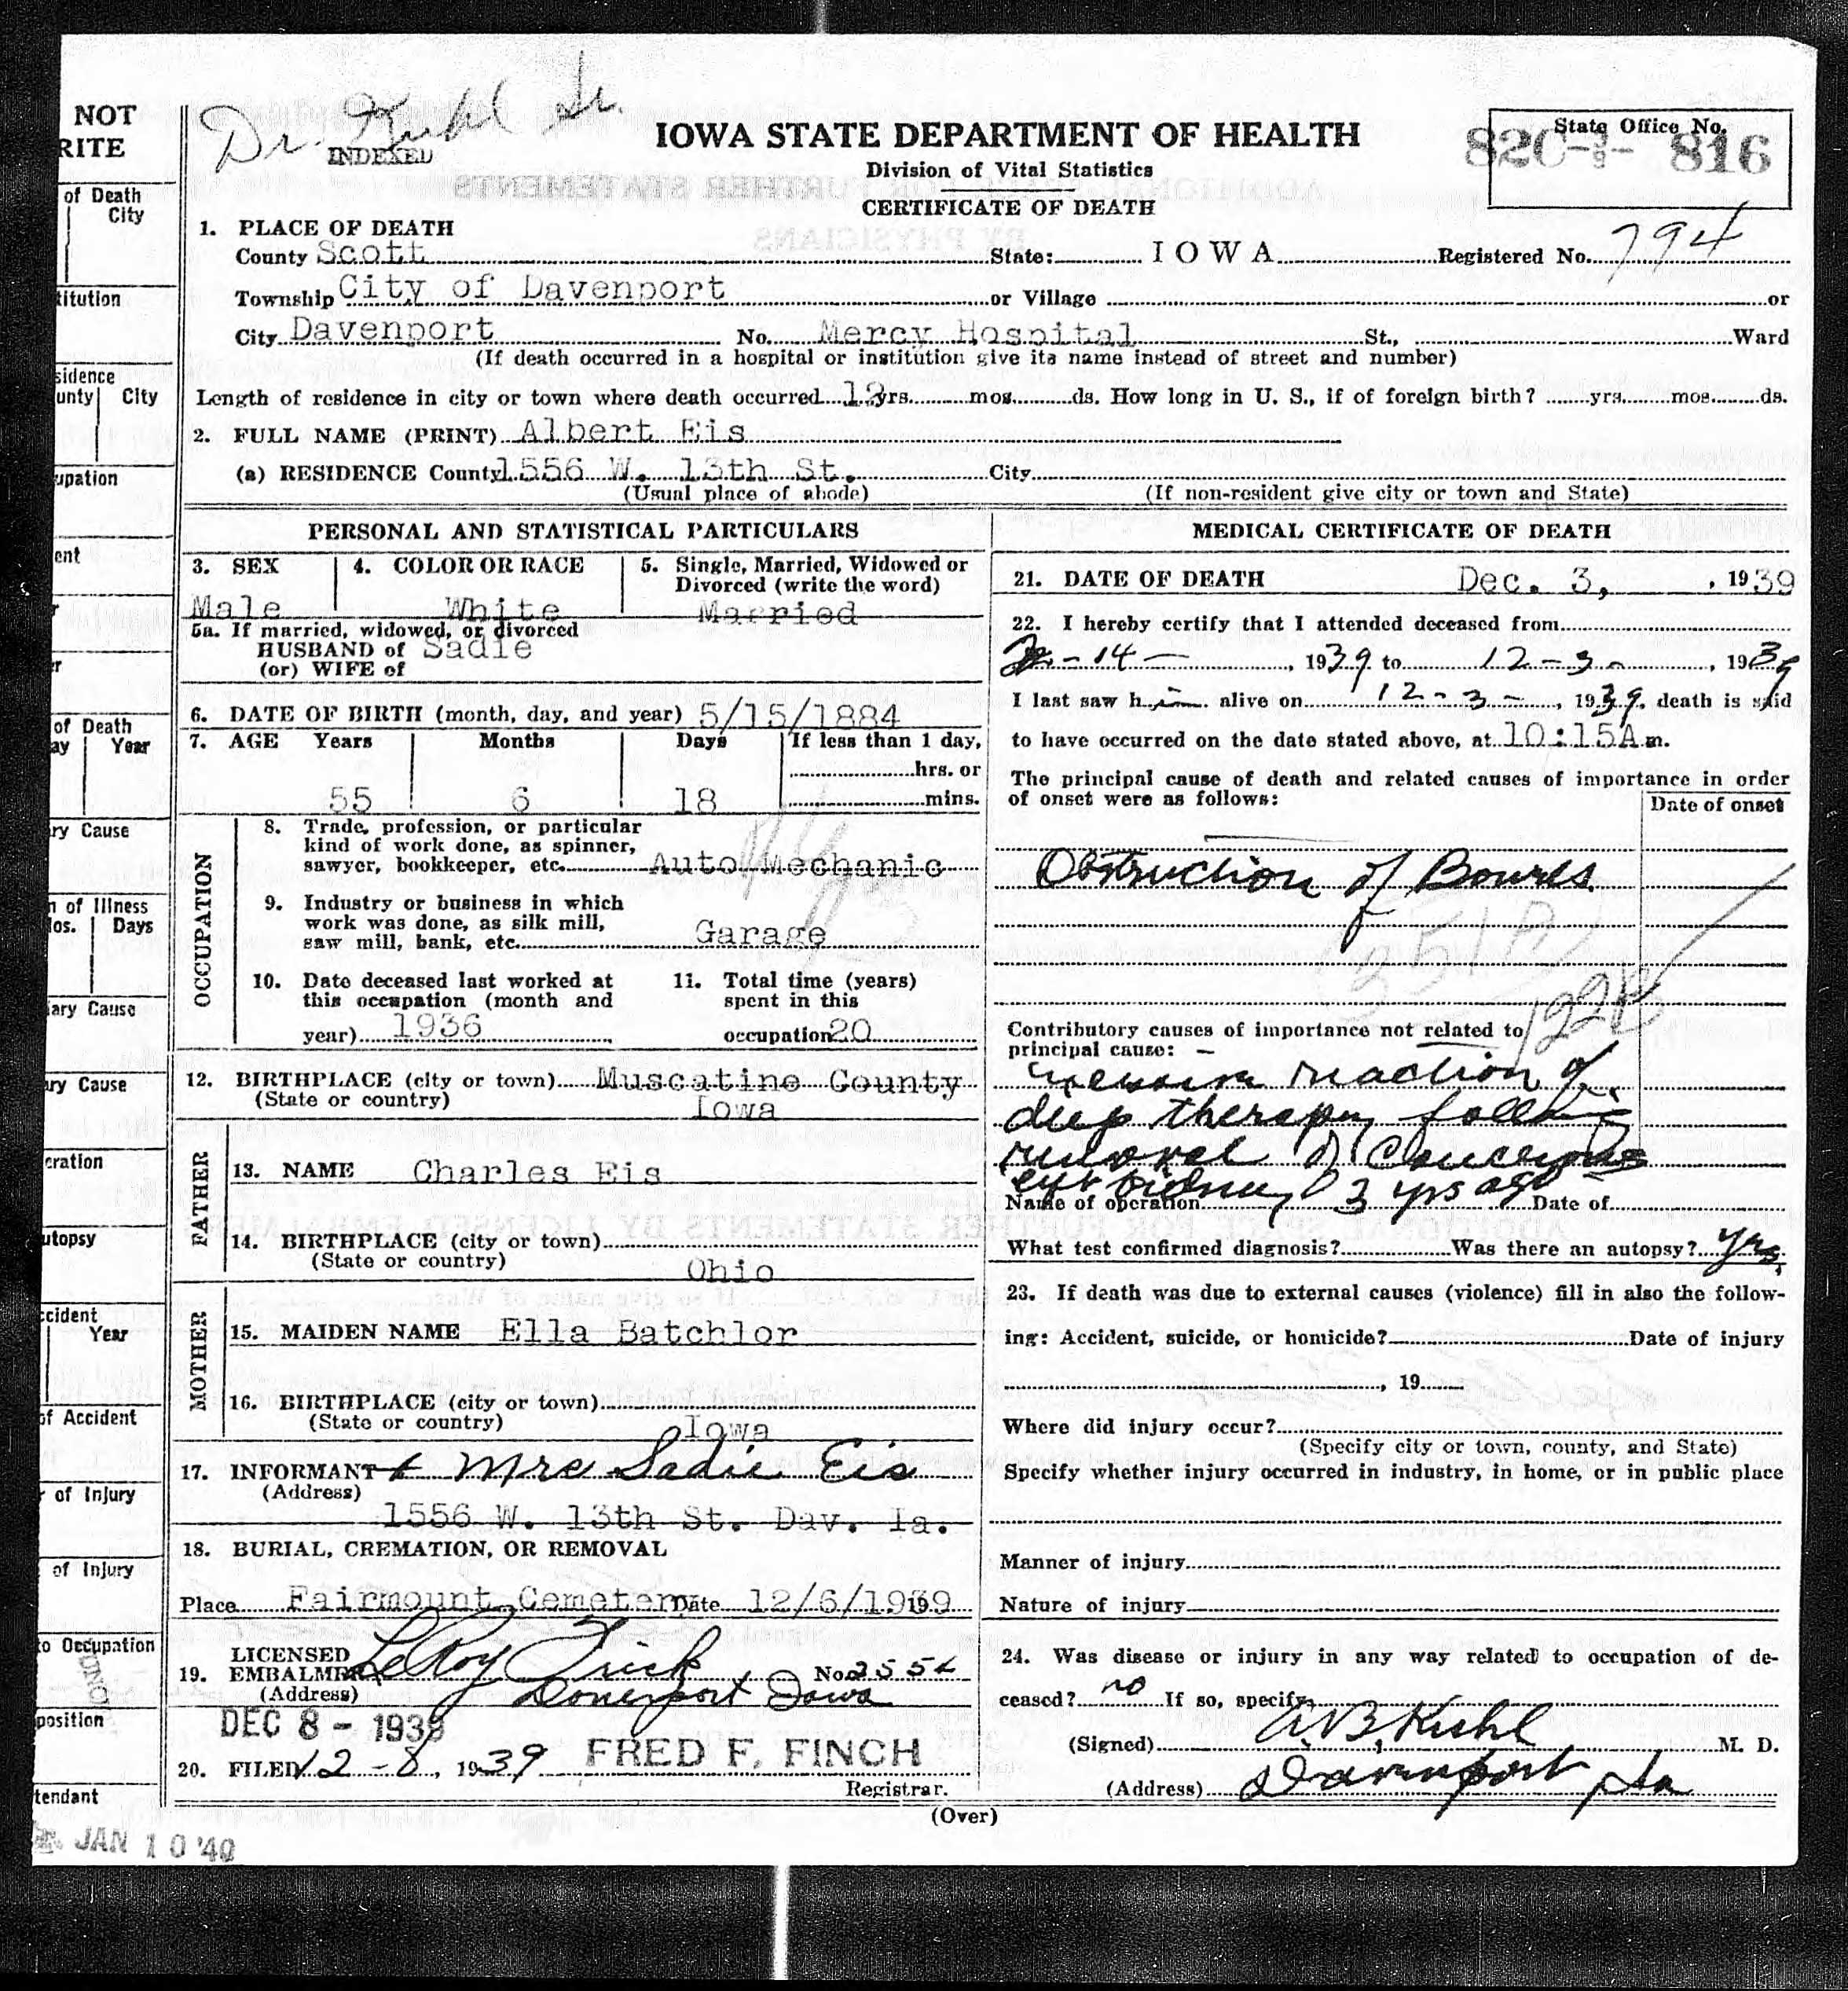 NOT
RITE
Dr. Kuhl Sr.
INDEXED
IOWA STATE DEPARTMENT OF HEALTH
Division of Vital Statistics
CERTIFICATE OF DEATH
State Office No.
82C- 816
1. PLACE OF DEATH
County Scott State: IOWA Registered No. 794
Township City of Davenport or Village or
City Davenport No. Mercy Hospital St., Ward
(If death occurred in a hospital or institution give its name instead of street and number)
Length of residence in city or town where death occurred 12 yrs. mos. ds. How long in U. S., if of foreign birth? yrs. mos. ds.
2. FULL NAME (PRINT) Albert Eis
(a) RESIDENCE County 1556 W. 13th St. City
(Usual place of abode) (If non-resident give city or town and State)
PERSONAL AND STATISTICAL PARTICULARS
3. SEX 4. COLOR OR RACE 5. Single, Married, Widowed or
Divorced (write the word)
Male White Married
5a. If married, widowed, or divorced
HUSBAND of Sadie
(or) WIFE of
6. DATE OF BIRTH (month, day, and year) 5/15/1884
7. AGE Years Months Days If less than 1 day,
hrs. or
55 6 18 mins.
OCCUPATION
8. Trade, profession, or particular
kind of work done, as spinner,
sawyer, bookkeeper, etc. Auto Mechanic
9. Industry or business in which
work was done, as silk mill,
saw mill, bank, etc. Garage
10. Date deceased last worked at
this occupation (month and
year) 1936
11. Total time (years)
spent in this
occupation 20
12. BIRTHPLACE (city or town) Muscatine County
(State or country) Iowa
FATHER
13. NAME Charles Eis
14. BIRTHPLACE (city or town)
(State or country) Ohio
MOTHER
15. MAIDEN NAME Ella Batchlor
16. BIRTHPLACE (city or town)
(State or country) Iowa
17. INFORMANT Mrs Sadie Eis
(Address)
1556 W. 13th St. Dav. Ia.
18. BURIAL, CREMATION, OR REMOVAL
Place Fairmount Cemetery Date 12/6/1939 19
19. LICENSED
EMBALMER LeRoy Frick No. 2554
(Address) Davenport Iowa
DEC 8 - 1939
20. FILED 12-8, 1939 FRED F. FINCH
Registrar.
MEDICAL CERTIFICATE OF DEATH
21. DATE OF DEATH Dec. 3, , 1939
22. I hereby certify that I attended deceased from
-14- , 1939 to 12-3- , 1939
I last saw him alive on 12-3-, 1939, death is said
to have occurred on the date stated above, at 10:15A m.
The principal cause of death and related causes of importance in order
of onset were as follows:
Date of onset
Obstruction of Bowels
122B
Contributory causes of importance not related to
principal cause: -
reaction of
deep therapy following
removal of Cancerous
left kidney 3 yrs ago
Name of operation Date of
What test confirmed diagnosis? Was there an autopsy? yes.
23. If death was due to external causes (violence) fill in also the follow-
ing: Accident, suicide, or homicide? Date of injury
, 19
Where did injury occur?
(Specify city or town, county, and State)
Specify whether injury occurred in industry, in home, or in public place
Manner of injury
Nature of injury
24. Was disease or injury in any way related to occupation of de-
ceased? no If so, specify
(Signed) A.B. Kuhl M. D.
(Address) Davenport Ia
(Over)
of Death
City
titution
sidence
unty City
upation
ent
r
er
r
of Death
ay Year
ry Cause
n of Illness
los. Days
iary Cause
ry Cause
eration
utopsy
ccident
Year
of Accident
of Injury
of Injury
to Occupation
position
tendant
JAN 10 '40